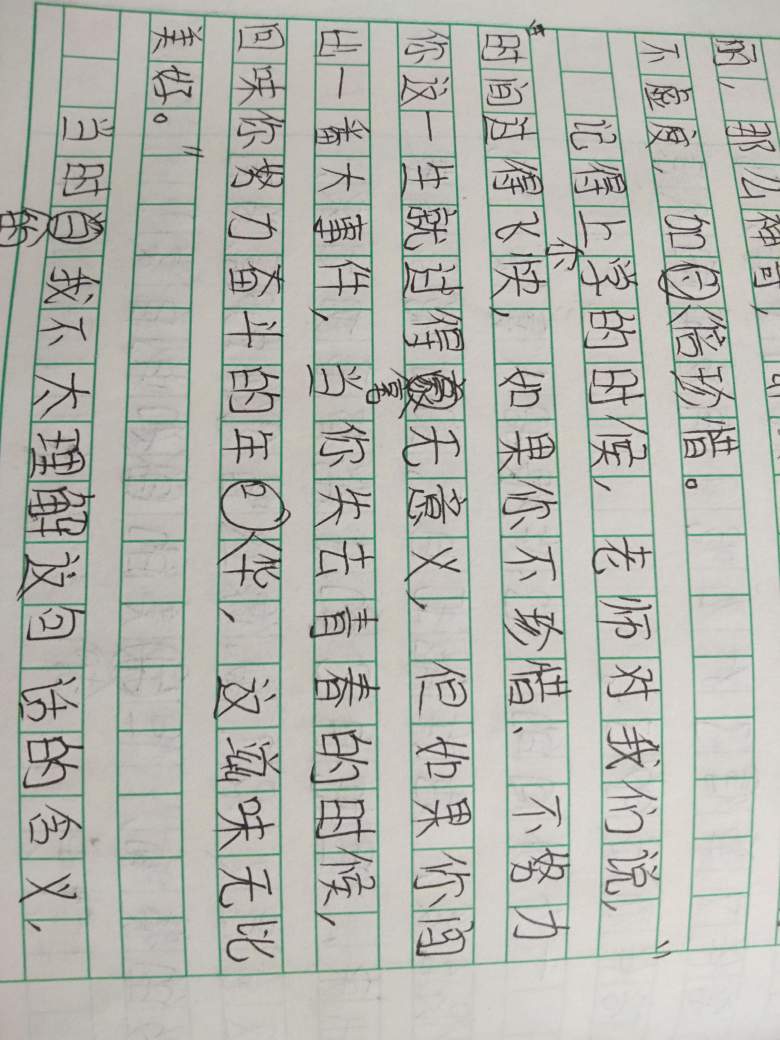 丽,那么神奇,
不虚度,加倍珍惜。
记得上小学的时候,老师对我们说,"
"时间过得飞快,如果你不珍惜、不努力
你这一生就过得毫无意义,但如果你闯
出一番大事件,当你失去青春的时候,
回味你努力奋斗的年华,这滋味无比
美好。"
当时的我不太理解这句话的含义,